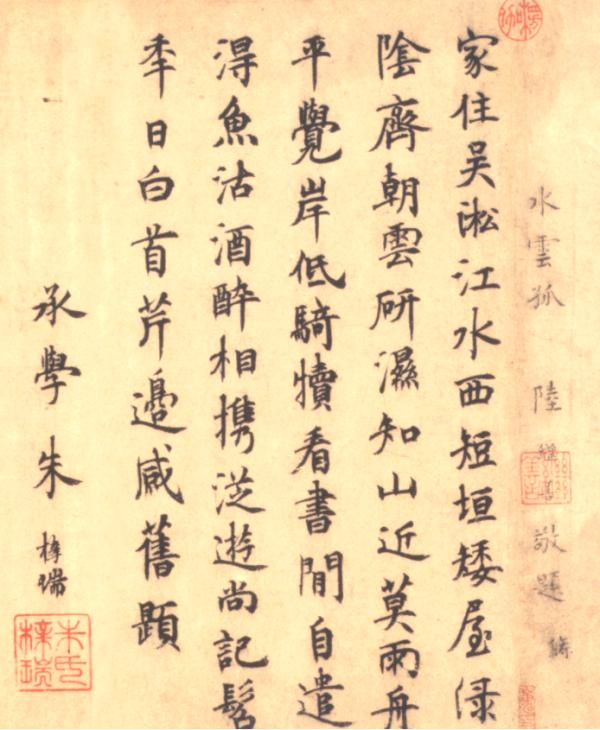 水雲孤 陸繼善敬題
家住吴淞江水西短垣矮屋渌
陰齊朝雲研濕知山近莫雨舟
平覺岸低騎犢看書閒自遣
淂魚沽酒醉相携從逰尚記髫
秊日白首芹邊感舊題
承學朱梓瑞